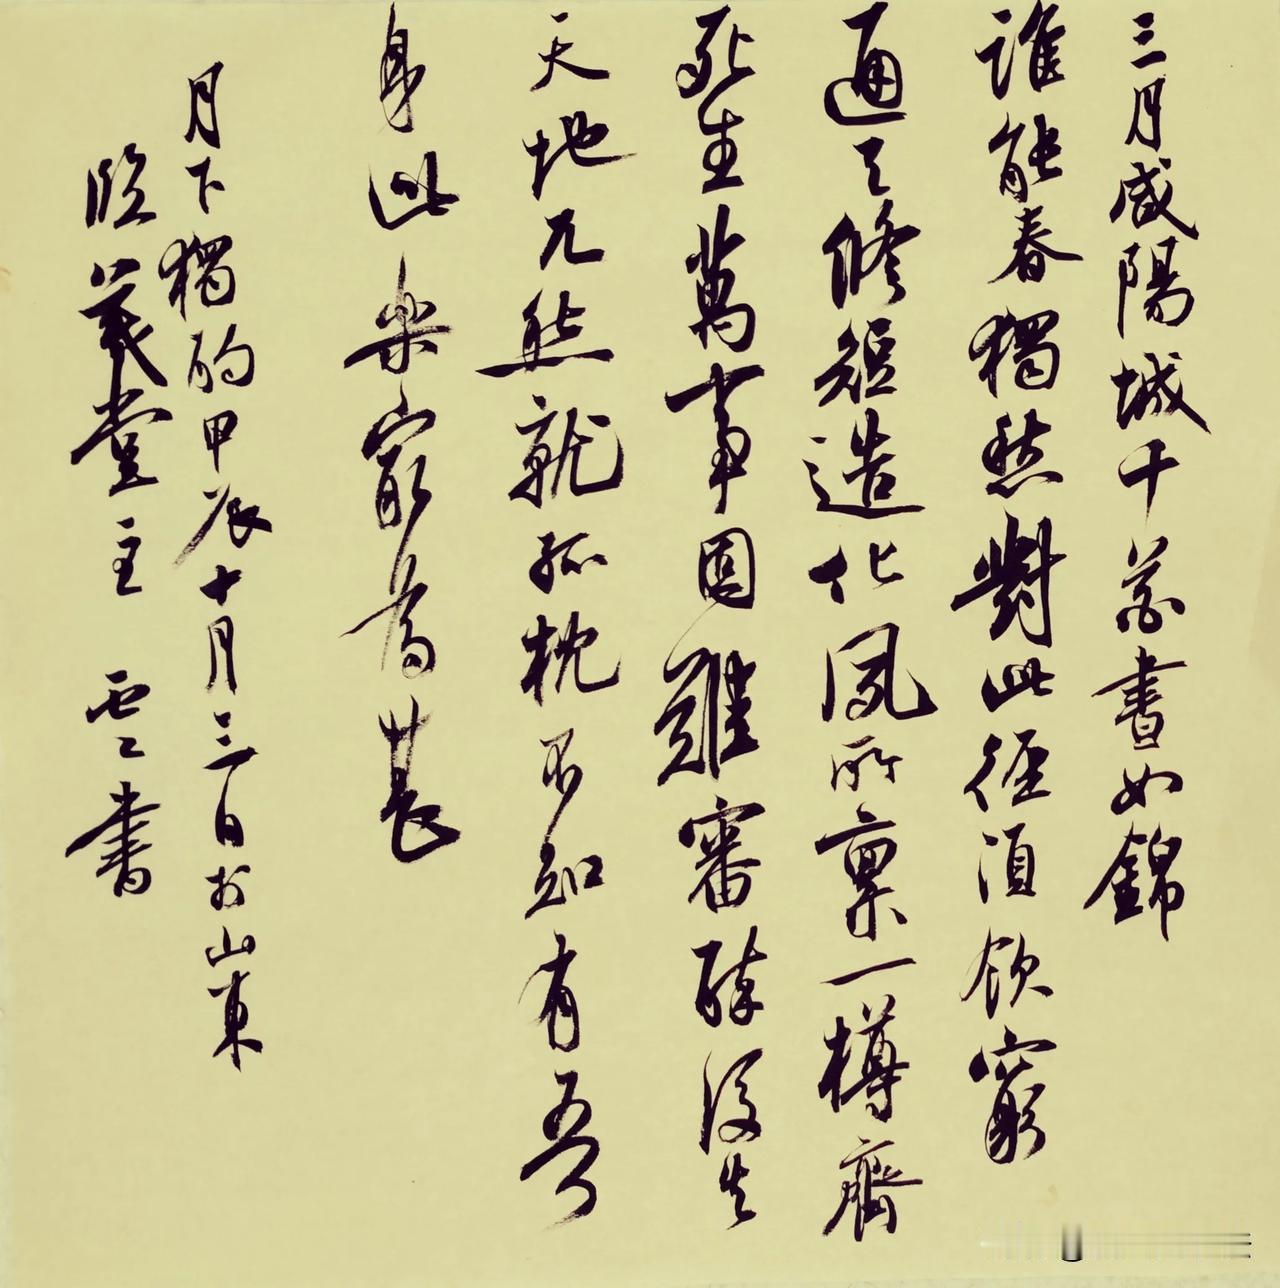 三月咸陽城千花晝如錦
誰能春獨愁對此徑須飲窮
通与修短造化夙所稟一樽齊
死生萬事固難審醉後失
天地兀然就孤枕不知有吾
身此樂最為甚
月下獨酌甲辰十月三日於山東
臨羲堂主 雲書